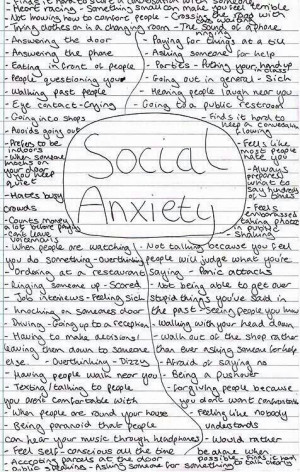 - Finds it hard to start a conversation with someone
- Heart racing - Something small can make you feel terrible
- Not knowing how to comfort people - Crossing the road with
- Trying clothes on in a changing room - The sound of a phone ringing
- Answering the door - Paying for things at a till
- Answering the phone - Asking someone for help
- Eating in front of people - Parties - Putting your hand up in class
- People questioning you - Going out in general - Sick
- Walking past people - Hearing people laugh near you
- Eye contact - Crying - Going to a public restroom
- Going into shops - Finds it hard to keep a conversation flowing
- Avoids going out
- Prefers to be indoors
- When someone knocks on your door you keep quiet
- Hates busy crowds
- Counts money a lot before paying
- Can't leave voicemails
Social
Anxiety
- Feels like most people hate you
- Always prepares what to say hundreds of times
- Feels embarrassed taking photos in public
- Shaking
- When people are watching you do something - Overthinking
- Ordering at a restaurant
- Ringing someone up - Scared
- Job interviews - Feeling sick
- Knocking on someones door
- Driving - Going up to a reception
- Having to make decisions/
leaving them down to someone
else - Overthinking - Dizzy
- Having people walk near you
- Texting/talking to people
you aren't comfortable with
- When people are round your house
- Being paranoid that people
can hear your music through headphones
- Feel self-conscious all the time
- Accepting parcels at the door
- Public speaking - Asking someone for something
- Not talking because you feel
people will judge what you're
saying - Panic attacks
- Not being able to get over
stupid things you've said in
the past - Seeing people you know
- Walking with your head down
- Walk out of the shop rather
than ever asking someone for help
- Afraid of saying no
- Being a pushover
- Forgiving people because
you don't want confrontation
- Feeling like nobody
understands
- Would rather
be alone when
possible - Finds it hard